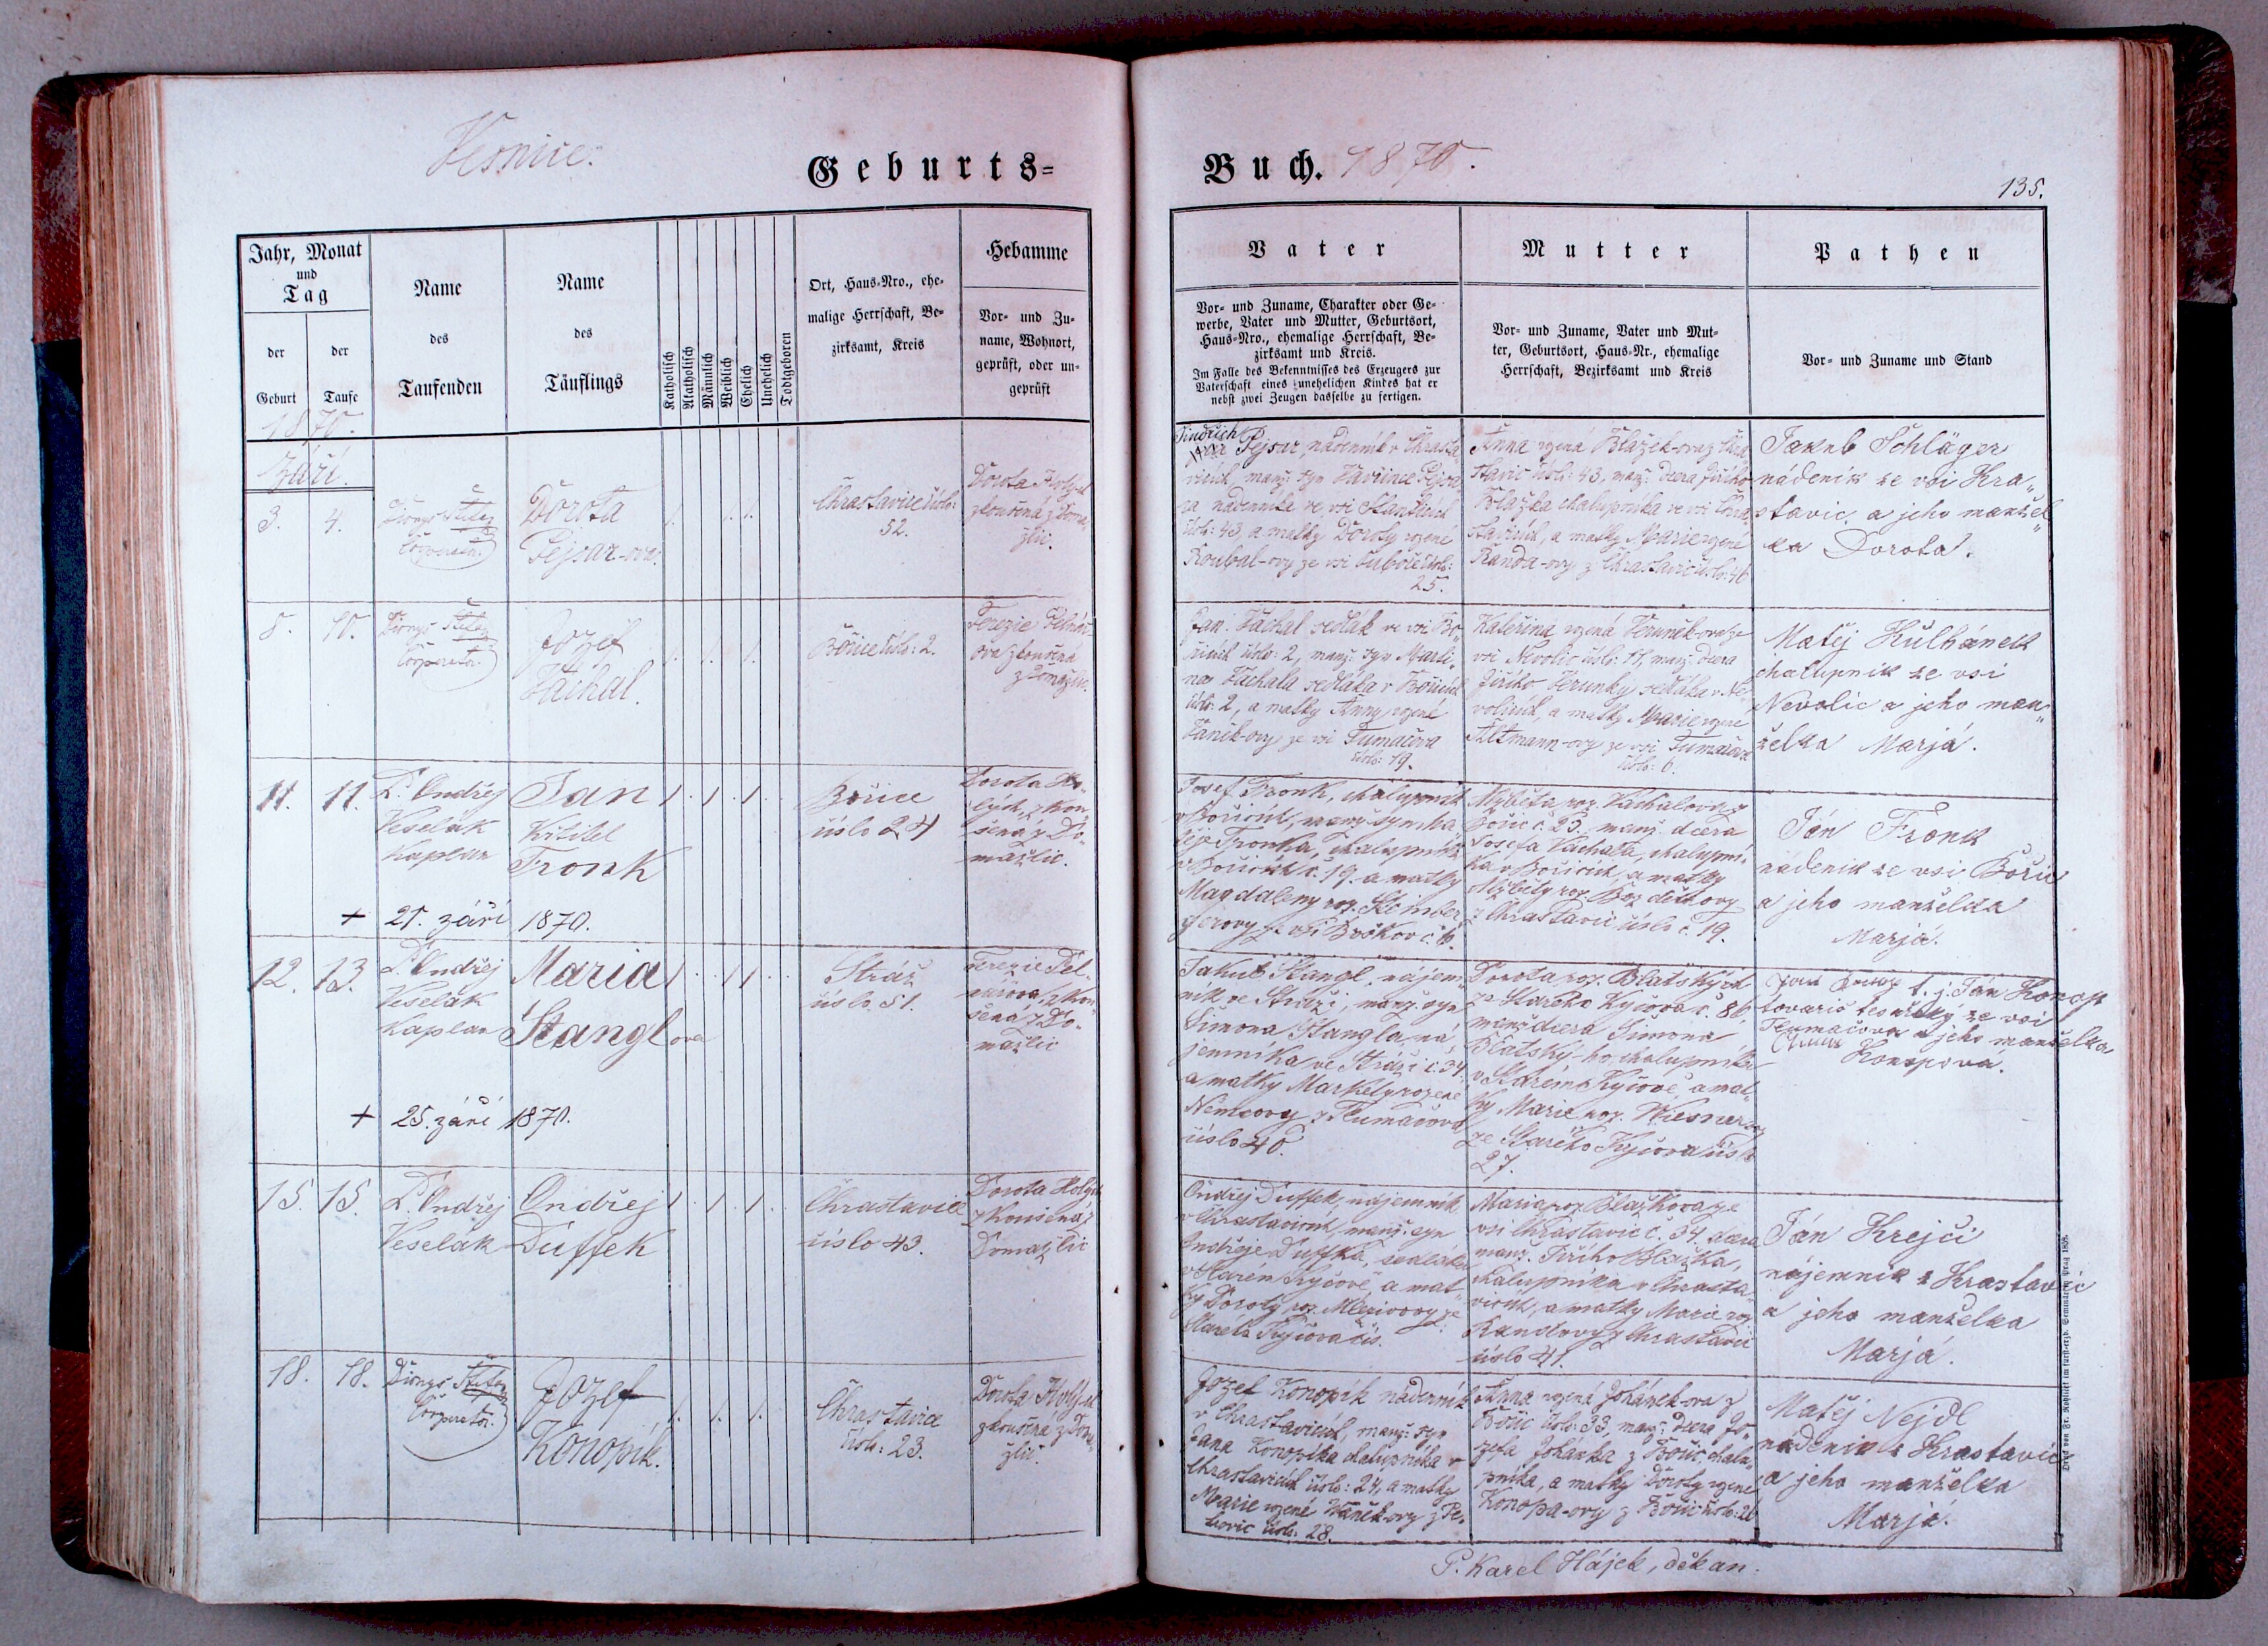 Vesnice.
Geburts=
Buch. 1870.
135.
Jahr, Monat
und
Tag
der
Geburt
der
Taufe
Name
des
Taufenden
Name
des
Täuflings
Katholisch
Akatholisch
Männlich
Weiblich
Ehelich
Unehelich
Todtgeboren
Ort, Haus-Nro., ehe-
malige Herrschaft, Be-
zirksamt, Kreis
Hebamme
Vor- und Zu-
name, Wohnort,
geprüft, oder un-
geprüft
Vater
Vor- und Zuname, Charakter oder Ge-
werbe, Vater und Mutter, Geburtsort,
Haus-Nro., ehemalige Herrschaft, Be-
zirksamt und Kreis.
Im Falle des Bekenntnisses des Erzeugers zur
Vaterschaft eines unehelichen Kindes hat er
nebst zwei Zeugen dasselbe zu fertigen.
Mutter
Vor- und Zuname, Vater und Mut-
ter, Geburtsort, Haus-Nr., ehemalige
Herrschaft, Bezirksamt und Kreis
Pathen
Vor- und Zuname und Stand
1870.
Září.
3. 4.
Dionys
Cooperator.
Dorota
Pejsar-ova.
Chrastavice čislo:
52.
Dorota
zkoušená z Doma„
žlic.
Jindřich
Pejsar, nádenník v Chrasta„
vicích, manž: syn Vavřince Pejsa„
ra nádenníka ve vsi
čislo: 43, a matky Doroty rozené
Roubal-ovy ze vsi čislo:
25.
Anna rozená Blažek-ova z Chra„
stavic čislo: 43, manž: dcera Jiřího
Blažka chalupníka ve vsi Chra„
stavicích, a matky Marie rozené
Randa-ovy z Chrastavic čislo: 46
Jakub Schläger
nádenik ze vsi Kra„
stavic, a jeho manžel„
ka Dorota.
8. 10.
Dionys
Cooperator.
Jozef
Váchal.
Bořice čislo: 2.
Terezie
ova zkoušená
z Domažlic.
Jan Váchal sedlák ve vsi Bo„
řicích čislo: 2, manž: syn Marti„
na Váchala sedláka v Bořicích
čislo: 2, a matky Anny rozené
Vaník-ovy ze vsi Tumačova
čislo: 19.
Kateřina rozená Beruněk-ova ze
vsi Nevolic čislo: 11, manž: dcera
Jiřího Berunky sedláka v Ne„
volicích, a matky Marie rozené
Altmann-ovy ze vsi Tumačova
čislo: 6.
Matěj Kulhánek
chalupnik ze vsi
Nevolic a jeho man„
želka Marjá.
11. 11.
P. Ondřej
Veselák
Kaplan
Jan
Křtitel
Fronk
Bořice
číslo 24
Dorota Ho„
lých, zkou„
šená z Do„
mažlic.
+ 21. září 1870.
Josef Fronk, chalupník
v Bořicích, manž. syn Ma„
těje Fronka, chalupníka
v Bořicích č. 19. a matky
Magdaleny roz.
ze vsi Bořkov č. 6.
Alžběta roz. Váchalova z
Bořic č. 23. manž. dcera
Josefa Váchala, chalupní„
ka v Bořicích, a matky
Alžběty roz.
z Chrastavic číslo č. 19.
Ján Fronk
nádenik ze vsi Bořic
a jeho manželka
Marjá.
12. 13.
P. Ondřej
Veselák
Kaplan
Maria
Stanglova
Stráž
číslo 51.
Terezie
zkou„
šená z Do„
mažlic
+ 25. září 1870.
Jakub Stangl, nájem„
ník ve Stráži, manž. syn
Šimona Stangla, ná„
jemníka ve Stráži č. 34.
a matky Markéty rozené
Němcovy z Tlumačova
číslo 40.
Dorota roz. Blatský
ze Starého Kyčova č. 86.
manž dcera Šimona
Blatský-ho, chalupníka
v Starém Kyčově, a mat„
ky Marie roz. Wiesner
ze Starého Kyčova číslo
27.
t. j. Ján Konop
tovariš tesařský ze vsi
Tlumačova a jeho manželka
Konopová.
15. 15.
P. Ondřej
Veselák
Ondřej
Duffek
Chrastavice
číslo 43.
Dorota Holých
zkoušená z
Domažlic
Ondřej Duffek, nájemník
v Chrastavicích, manž. syn
Ondřeje Duffka, sedláka
v Starém Kyčově a mat„
ky Doroty roz. ze
Starého Kyčova čís.
Maria roz. Blažkova ze
vsi Chrastavic č. 34. dcera
manž. Jiřího Blažka,
chalupníka v Chrasta„
vicích, a matky Marie roz.
Randovy z Chrastavic
číslo 41.
Ján Krejči
nájemnik z Krastavic
a jeho manželka
Marjá.
18. 18.
Dionys
Cooperator.
Jozef
Konopík.
Chrastavice
čislo: 23.
Dorota
zkoušená z Doma
žlic.
Jozef Konopík nádenník
v Chrastavicích, manž: syn
Jana Konopíka chalupníka v
Chrastavicích čislo: 24, a matky
Marie rozené Vaněk-ovy z Pe„
čislo: 28.
Anna rozená Johánek-ova z
Bořic čislo: 33. manž: dcera Jo„
zefa Johánka z Bořic, chalu„
pníka, a matky Doroty rozené
Konopa-ovy z Bořic čislo: 26
Matěj Nejdl
nádenik z Krastavic
a jeho manželka
Marjá.
P. Karel Hájek, děkan.